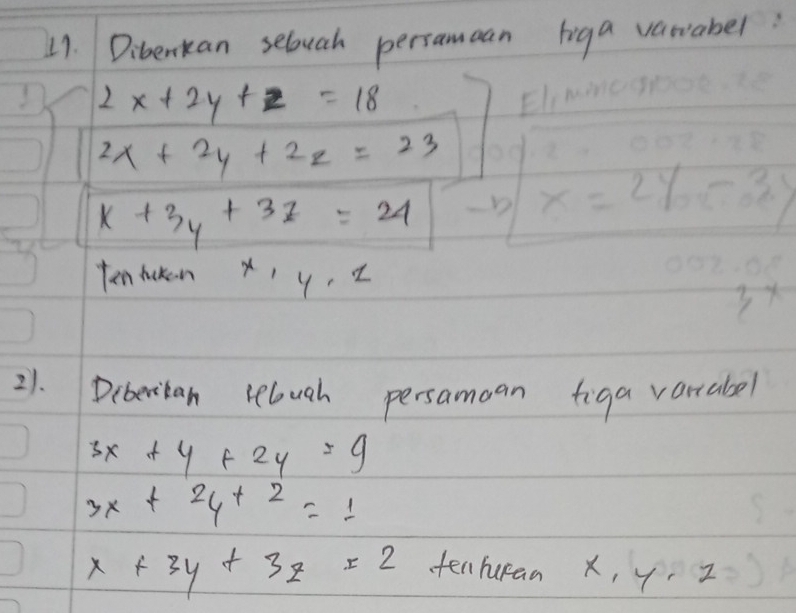 1). Diberikan sebuah persamaan tiga variabel :
2x + 2y + z = 18
2x + 2y + 2z = 23
x + 3y + 3z = 24
x = 2y - 3y
Tentukan x, y, z
3x
2). Diberikan sebuah persamaan tiga variabel
3x + y + 2y = 9
3x + 2y + 2 = 1
x + 3y + 3z = 2 tentukan x, y, z